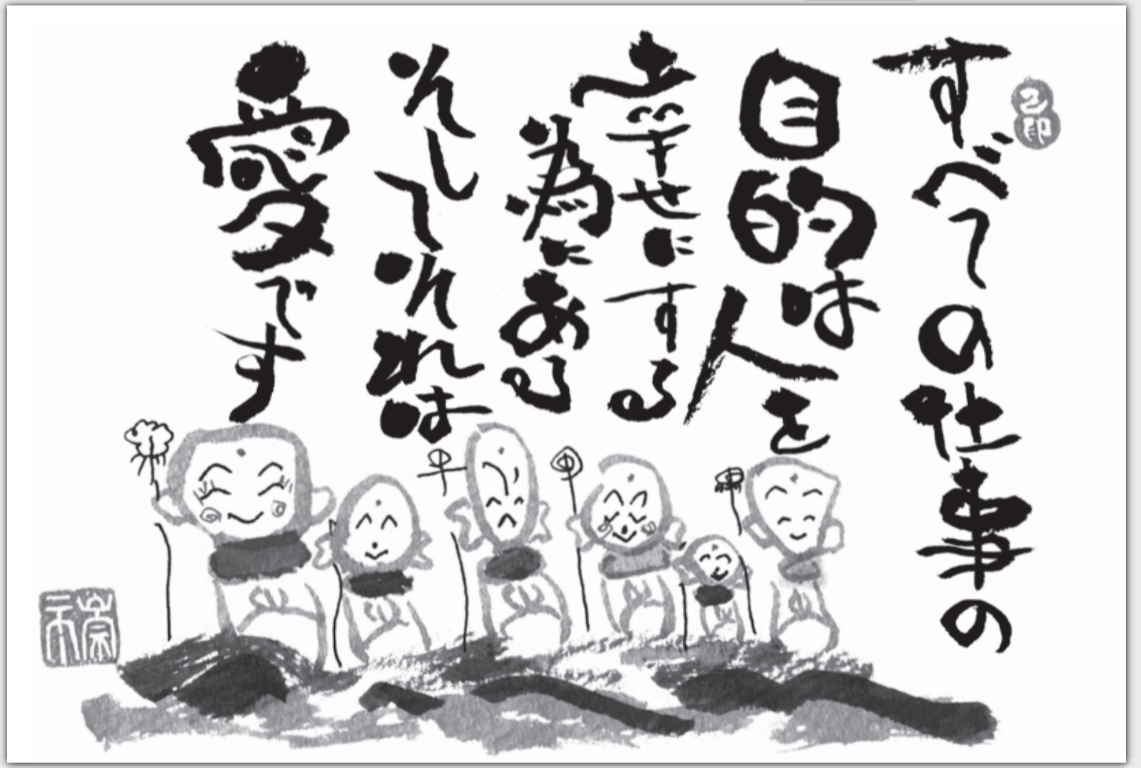 すべての仕事の
目的は人を
幸せにする
為にある
そしてそれは
愛です